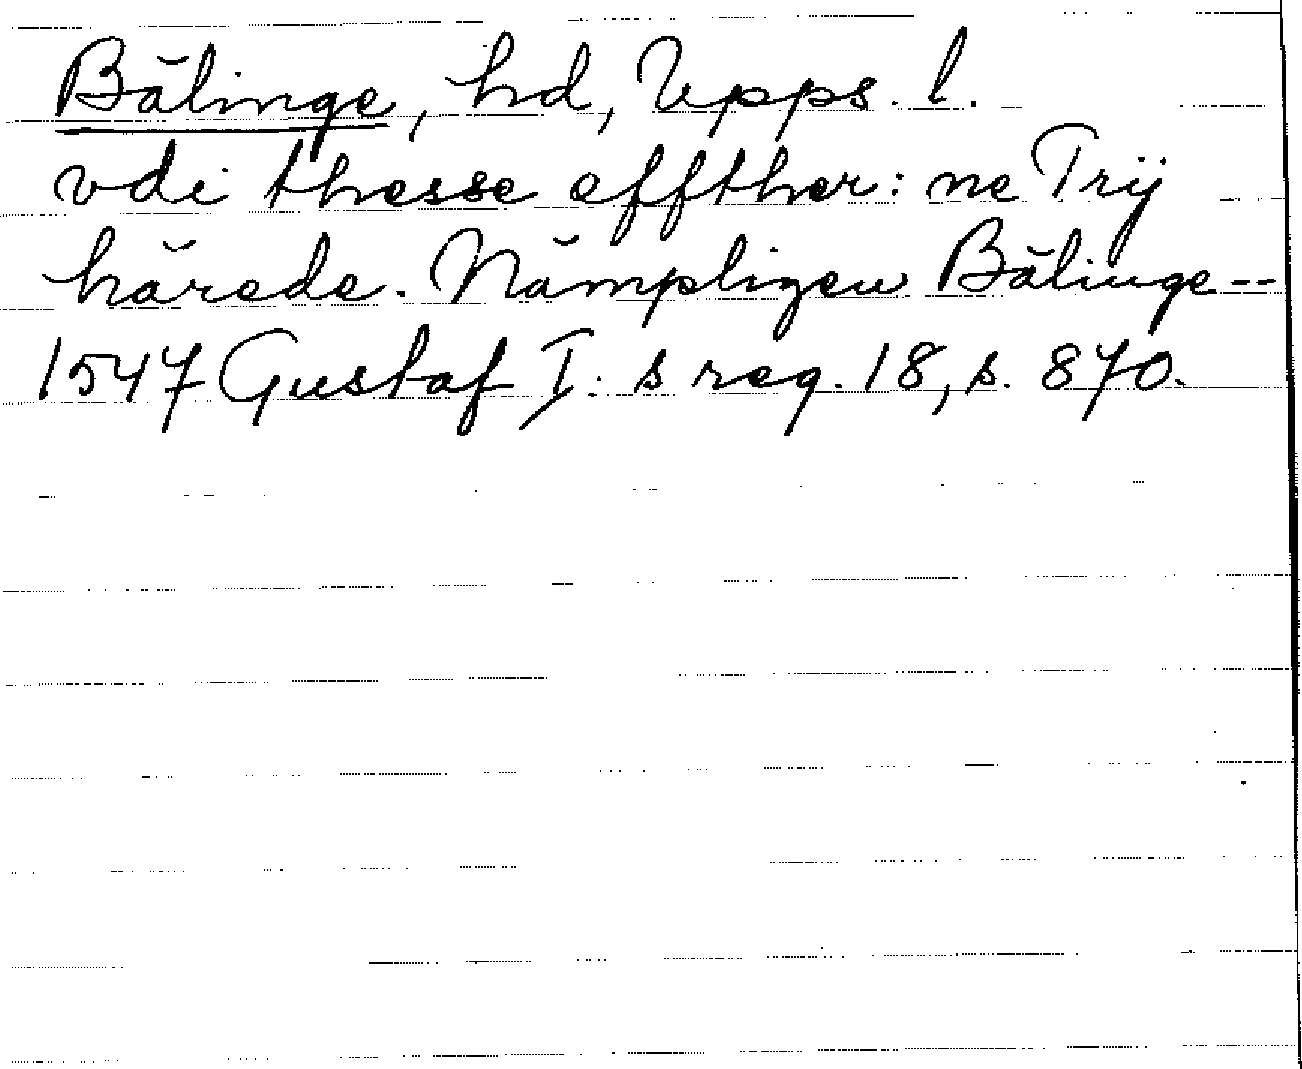 Bälinge, hd, Upps. l.
vdi thesse effther: ne Trij
härede. Nämpligen Bälinge--
1547 Gustaf I: s reg. 18, s. 870.